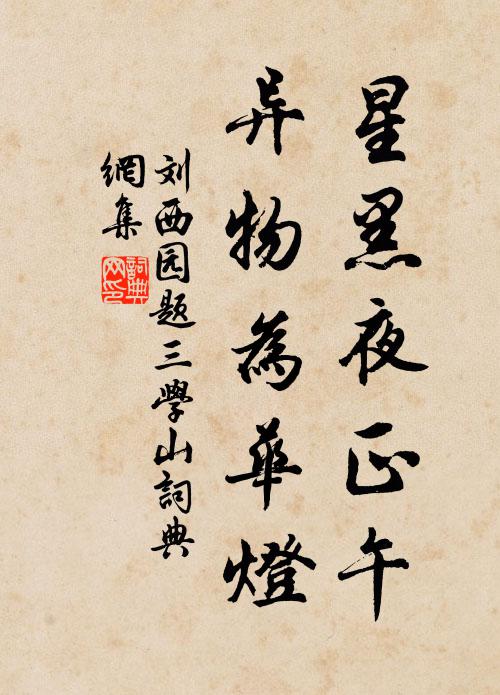 星黑夜正午
异物為華燈
刘西园题三學山詞典
網集
詞典
网印